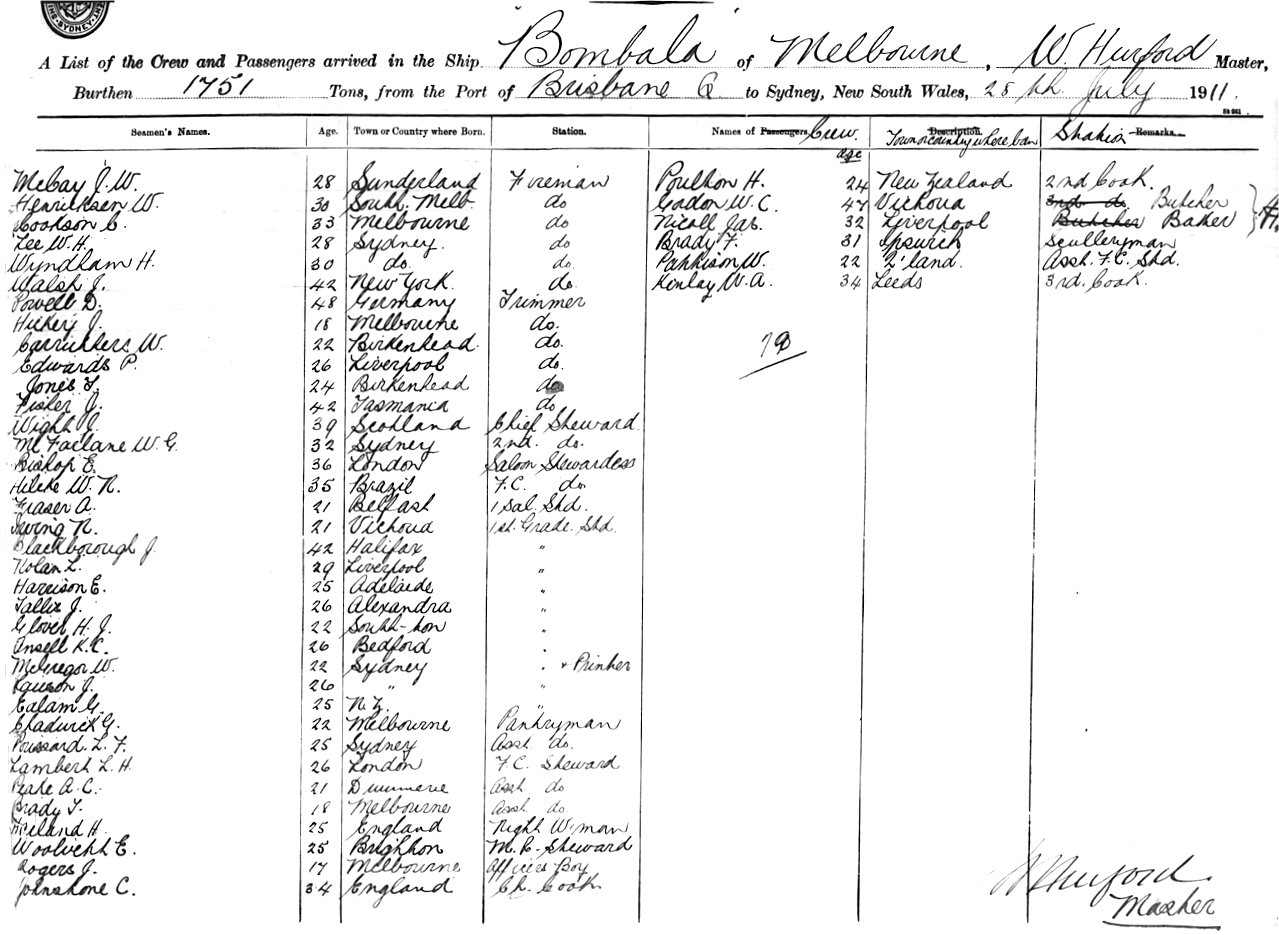 SYDNEY
A List of the Crew and Passengers arrived in the Ship Bombala of Melbourne, W. Hurford Master,
Burthen 1751 Tons, from the Port of Brisbane Q to Sydney, New South Wales, 28th July 1911.
Seamen's Names. Age. Town or Country where Born. Station. Names of Passengers Crew. Description. Town or country where born Station Remarks.
age
McCay J. W. 28 Sunderland Fireman Poulton H. 24 New Zealand 2nd Cook.
Henricksen W. 30 South Melb. do Gordon W. C. 47 Victoria 3rd do. Butcher
Cookson C. 33 Melbourne do Nicoll Jas. 32 Liverpool Butcher Baker
Lee W. H. 28 Sydney. do Brady F. 31 Ipswich Sculleryman
Wyndham H. 30 do. do. Parkison W. 22 Z'land. Asst. F.C. Std.
Walsh J. 42 New York. do. Kinlay W. A. 34 Leeds 3rd. Cook.
Powell D. 48 Germany Trimmer
Hickey J. 18 Melbourne do.
Carruthers W. 22 Birkenhead. do.
Edwards P. 26 Liverpool do.
Jones F. 24 Birkenhead do
Fisher J. 42 Tasmania do
Wight J. 39 Scotland Chief Steward.
McFarlane W. G. 32 Sydney 2nd. do.
Bishop E. 36 London Saloon Stewardess
Hilcke W. R. 35 Brazil F.C. do.
Fraser A. 21 Belfast 1 Sal. Std.
Irving R. 21 Victoria 1st. Grade. Std.
Blackborough J. 42 Halifax "
Nolan L. 29 Liverpool "
Harrison E. 25 Adelaide "
Tallix J. 26 Alexandra "
Glover H. J. 22 South-ton "
Insell K. C. 26 Bedford "
McGregor W. 22 Sydney " + Printer
J. 26 " "
Ealam G. 25 N. Z. "
Chadwick G. 22 Melbourne Pantryman
Poussard L. F. 25 Sydney Asst. do.
Lambert L. H. 26 London F.C. Steward
Peake A. C. 21 Asst. do
Brady T. 18 Melbourne Asst. do
H. 25 England Night W'man
Woolvett E. 25 Brighton M. R. Steward
Rogers J. 17 Melbourne Officers Boy
Johnstone C. 34 England Ch. Cook
W Hurford.
Master